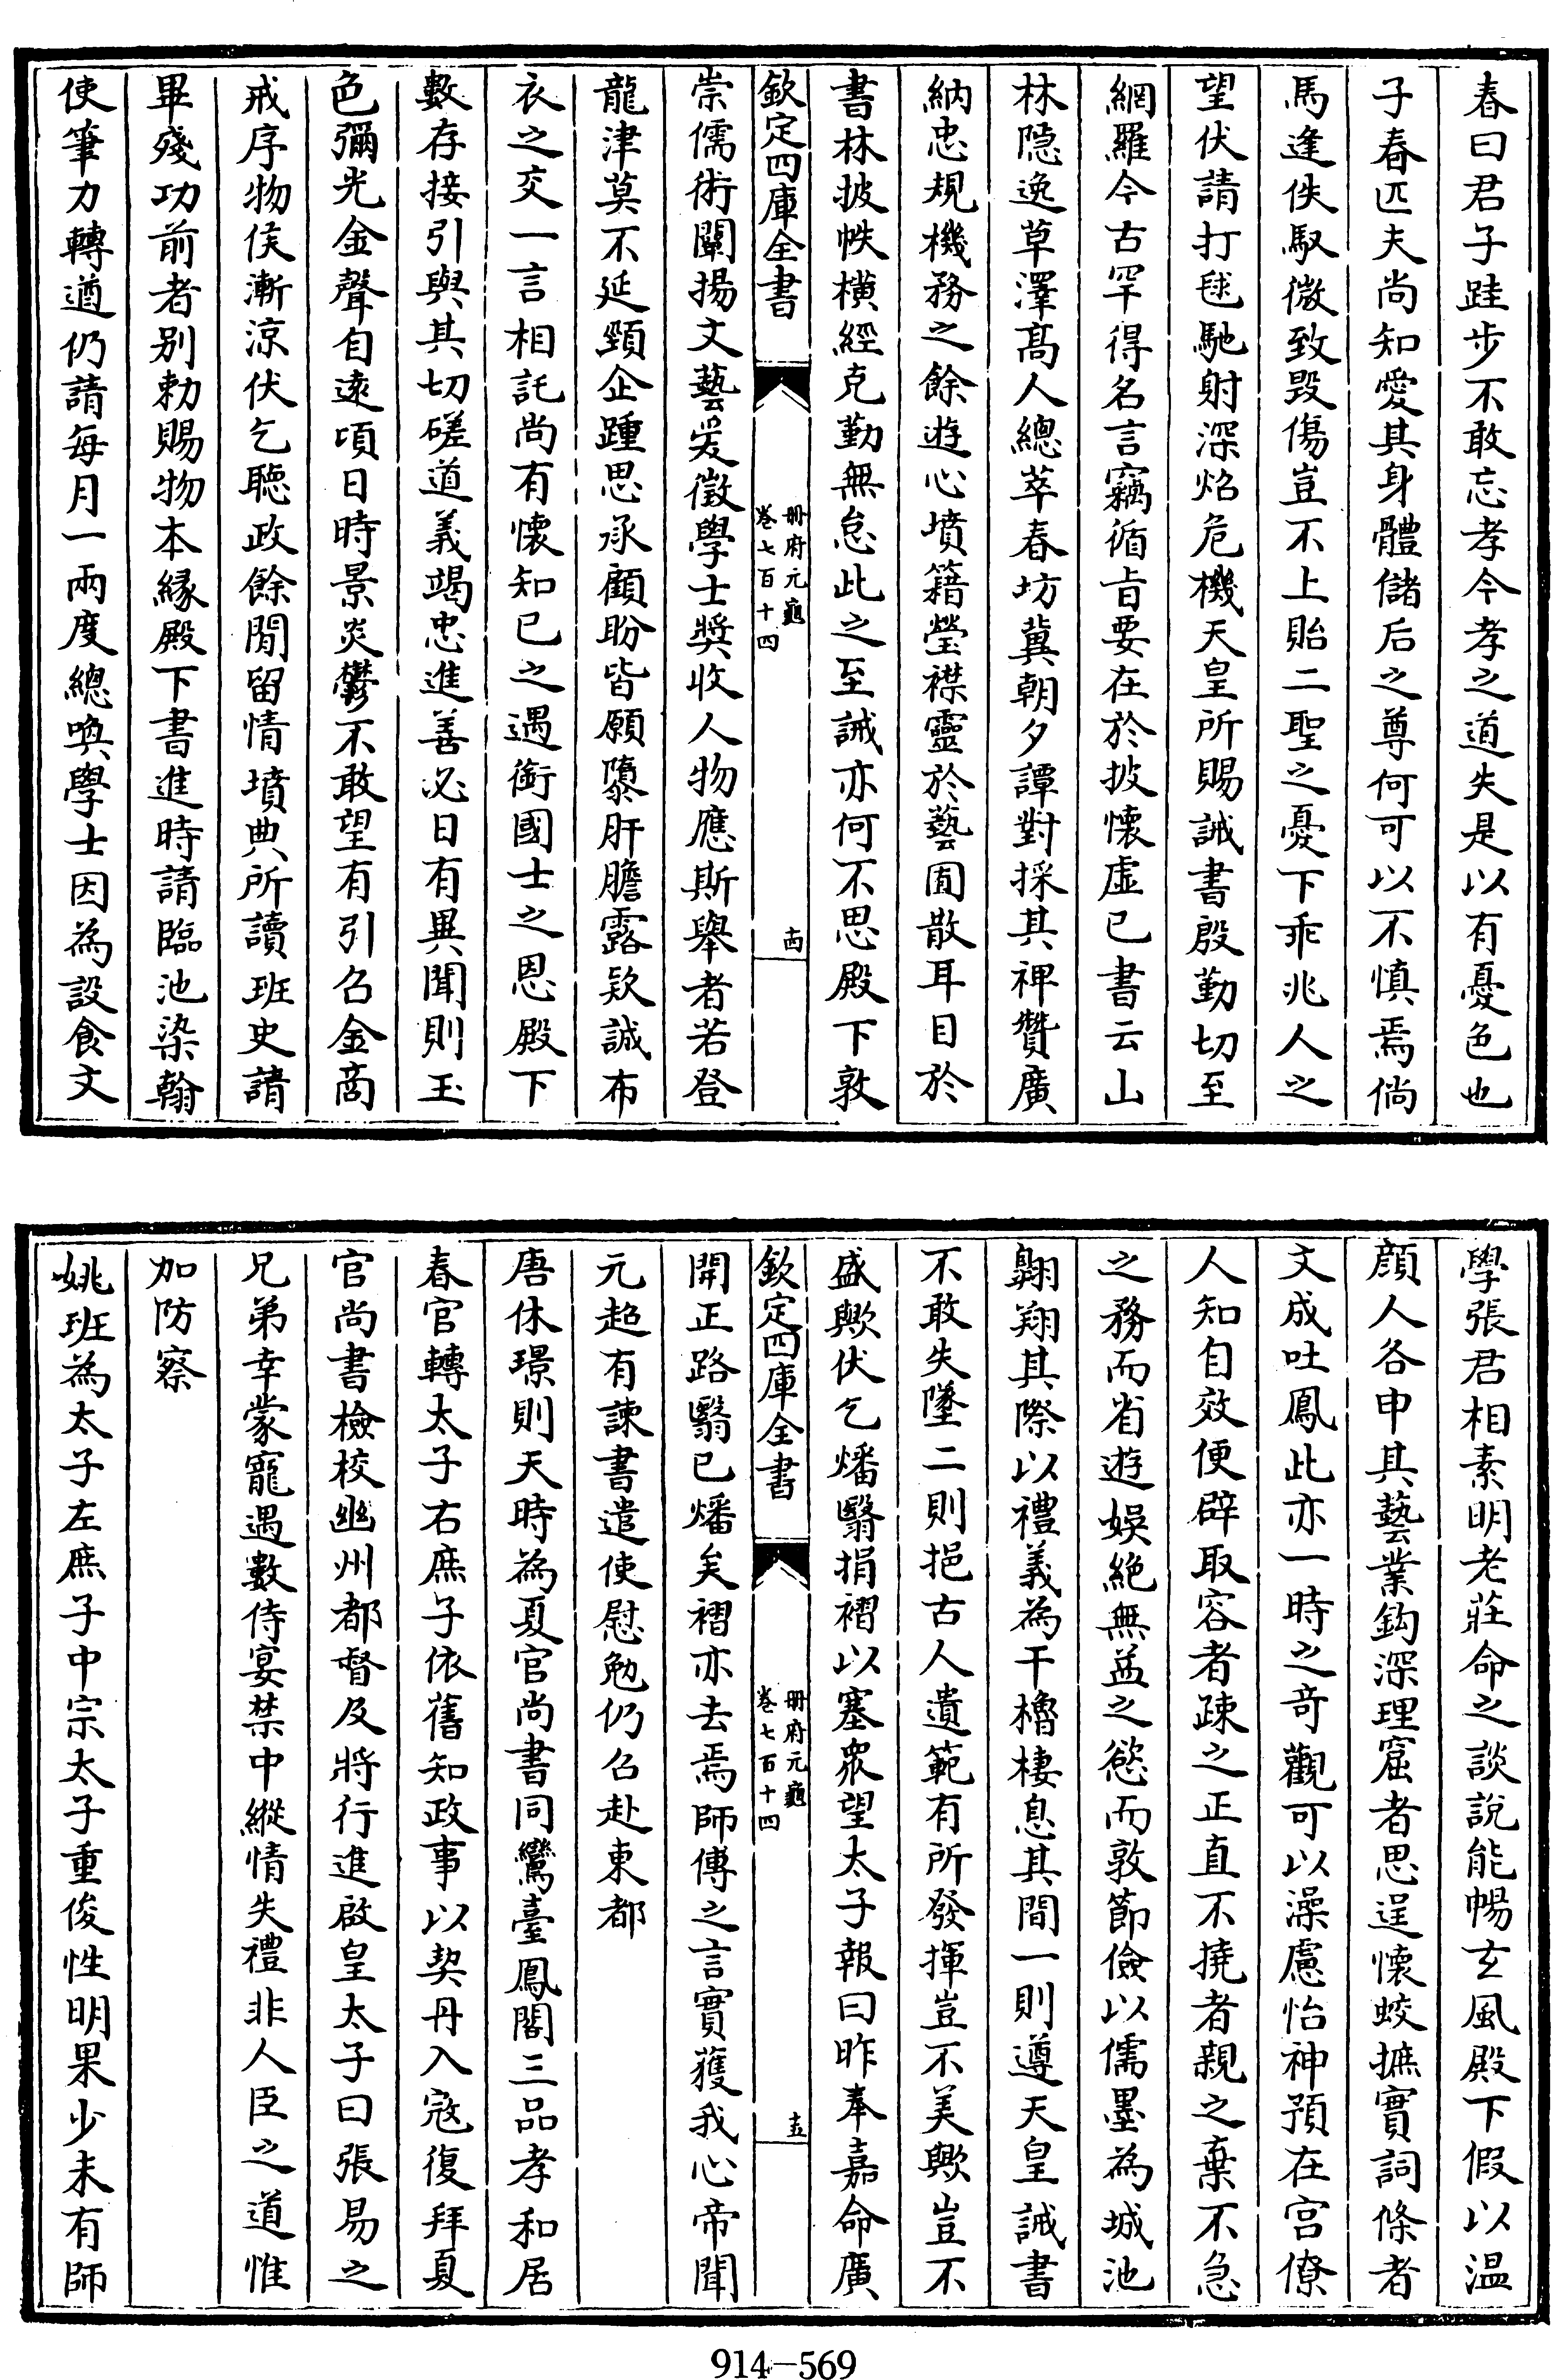 春曰君子跬步不敢忘孝今孝之道失是以有憂色也
子春匹夫尚知愛其身體儲后之尊何可以不慎焉倘
馬逢佚馭微致毀傷豈不上貽二聖之憂下乖兆人之
望伏請打毬馳射深炤危機天皇所賜誡書殷勤切至
網羅今古罕得名言竊循旨要在於披懷虛已書云山
林隠逸草澤髙人總萃春坊冀朝夕譚對採其裨贊廣
納忠規機務之餘遊心墳籍瑩襟靈於藝囿散耳目於
書林披帙橫經克勤無怠此之至誡亦何不思殿下敦
欽定四庫全書
冊府元龜
卷七百十四
十四
崇儒術闡揚文藝爰徵學士獎收人物應斯舉者若登
龍津莫不延頸企踵思承顧盼皆願隳肝膽露欵誠布
衣之交一言相託尚有懷知已之遇銜國士之恩殿下
數存接引與其切磋道義竭忠進善必日有異聞則玉
色彌光金聲自遠頃日時景炎鬱不敢望有引召金商
戒序物侯漸涼伏乞聽政餘閒留情墳典所讀班史請
畢殘功前者别勅賜物本縁殿下書進時請臨池染翰
使筆力轉遒仍請每月一兩度總喚學士因為設食文
學張君相素明老莊命之談說能暢玄風殿下假以温
顔人各申其藝業鈎深理窟者思逞懷蛟摭實詞條者
文成吐鳳此亦一時之竒觀可以澡慮怡神預在宫僚
人知自效便辟取容者疎之正直不撓者親之棄不急
之務而省遊娛絶無益之慾而敦節儉以儒墨為城池
翺翔其際以禮義為干櫓棲息其間一則遵天皇誡書
不敢失墜二則挹古人遺範有所發揮豈不美歟豈不
盛歟伏乞燔翳捐褶以塞衆望太子報曰昨奉嘉命廣
欽定四庫全書
冊府元龜
卷七百十四
十五
開正路翳已燔矣褶亦去焉師傅之言實獲我心帝聞
元超有諫書遣使慰勉仍召赴東都
唐休璟則天時為夏官尚書同鸞臺鳳閣三品孝和居
春官轉太子右庶子依舊知政事以契丹入冦復拜夏
官尚書檢校幽州都督及將行進啟皇太子曰張易之
兄弟幸蒙寵遇數侍宴禁中縱情失禮非人臣之道惟
加防察
姚班為太子左庶子中宗太子重俊性明果少未有師
914-569